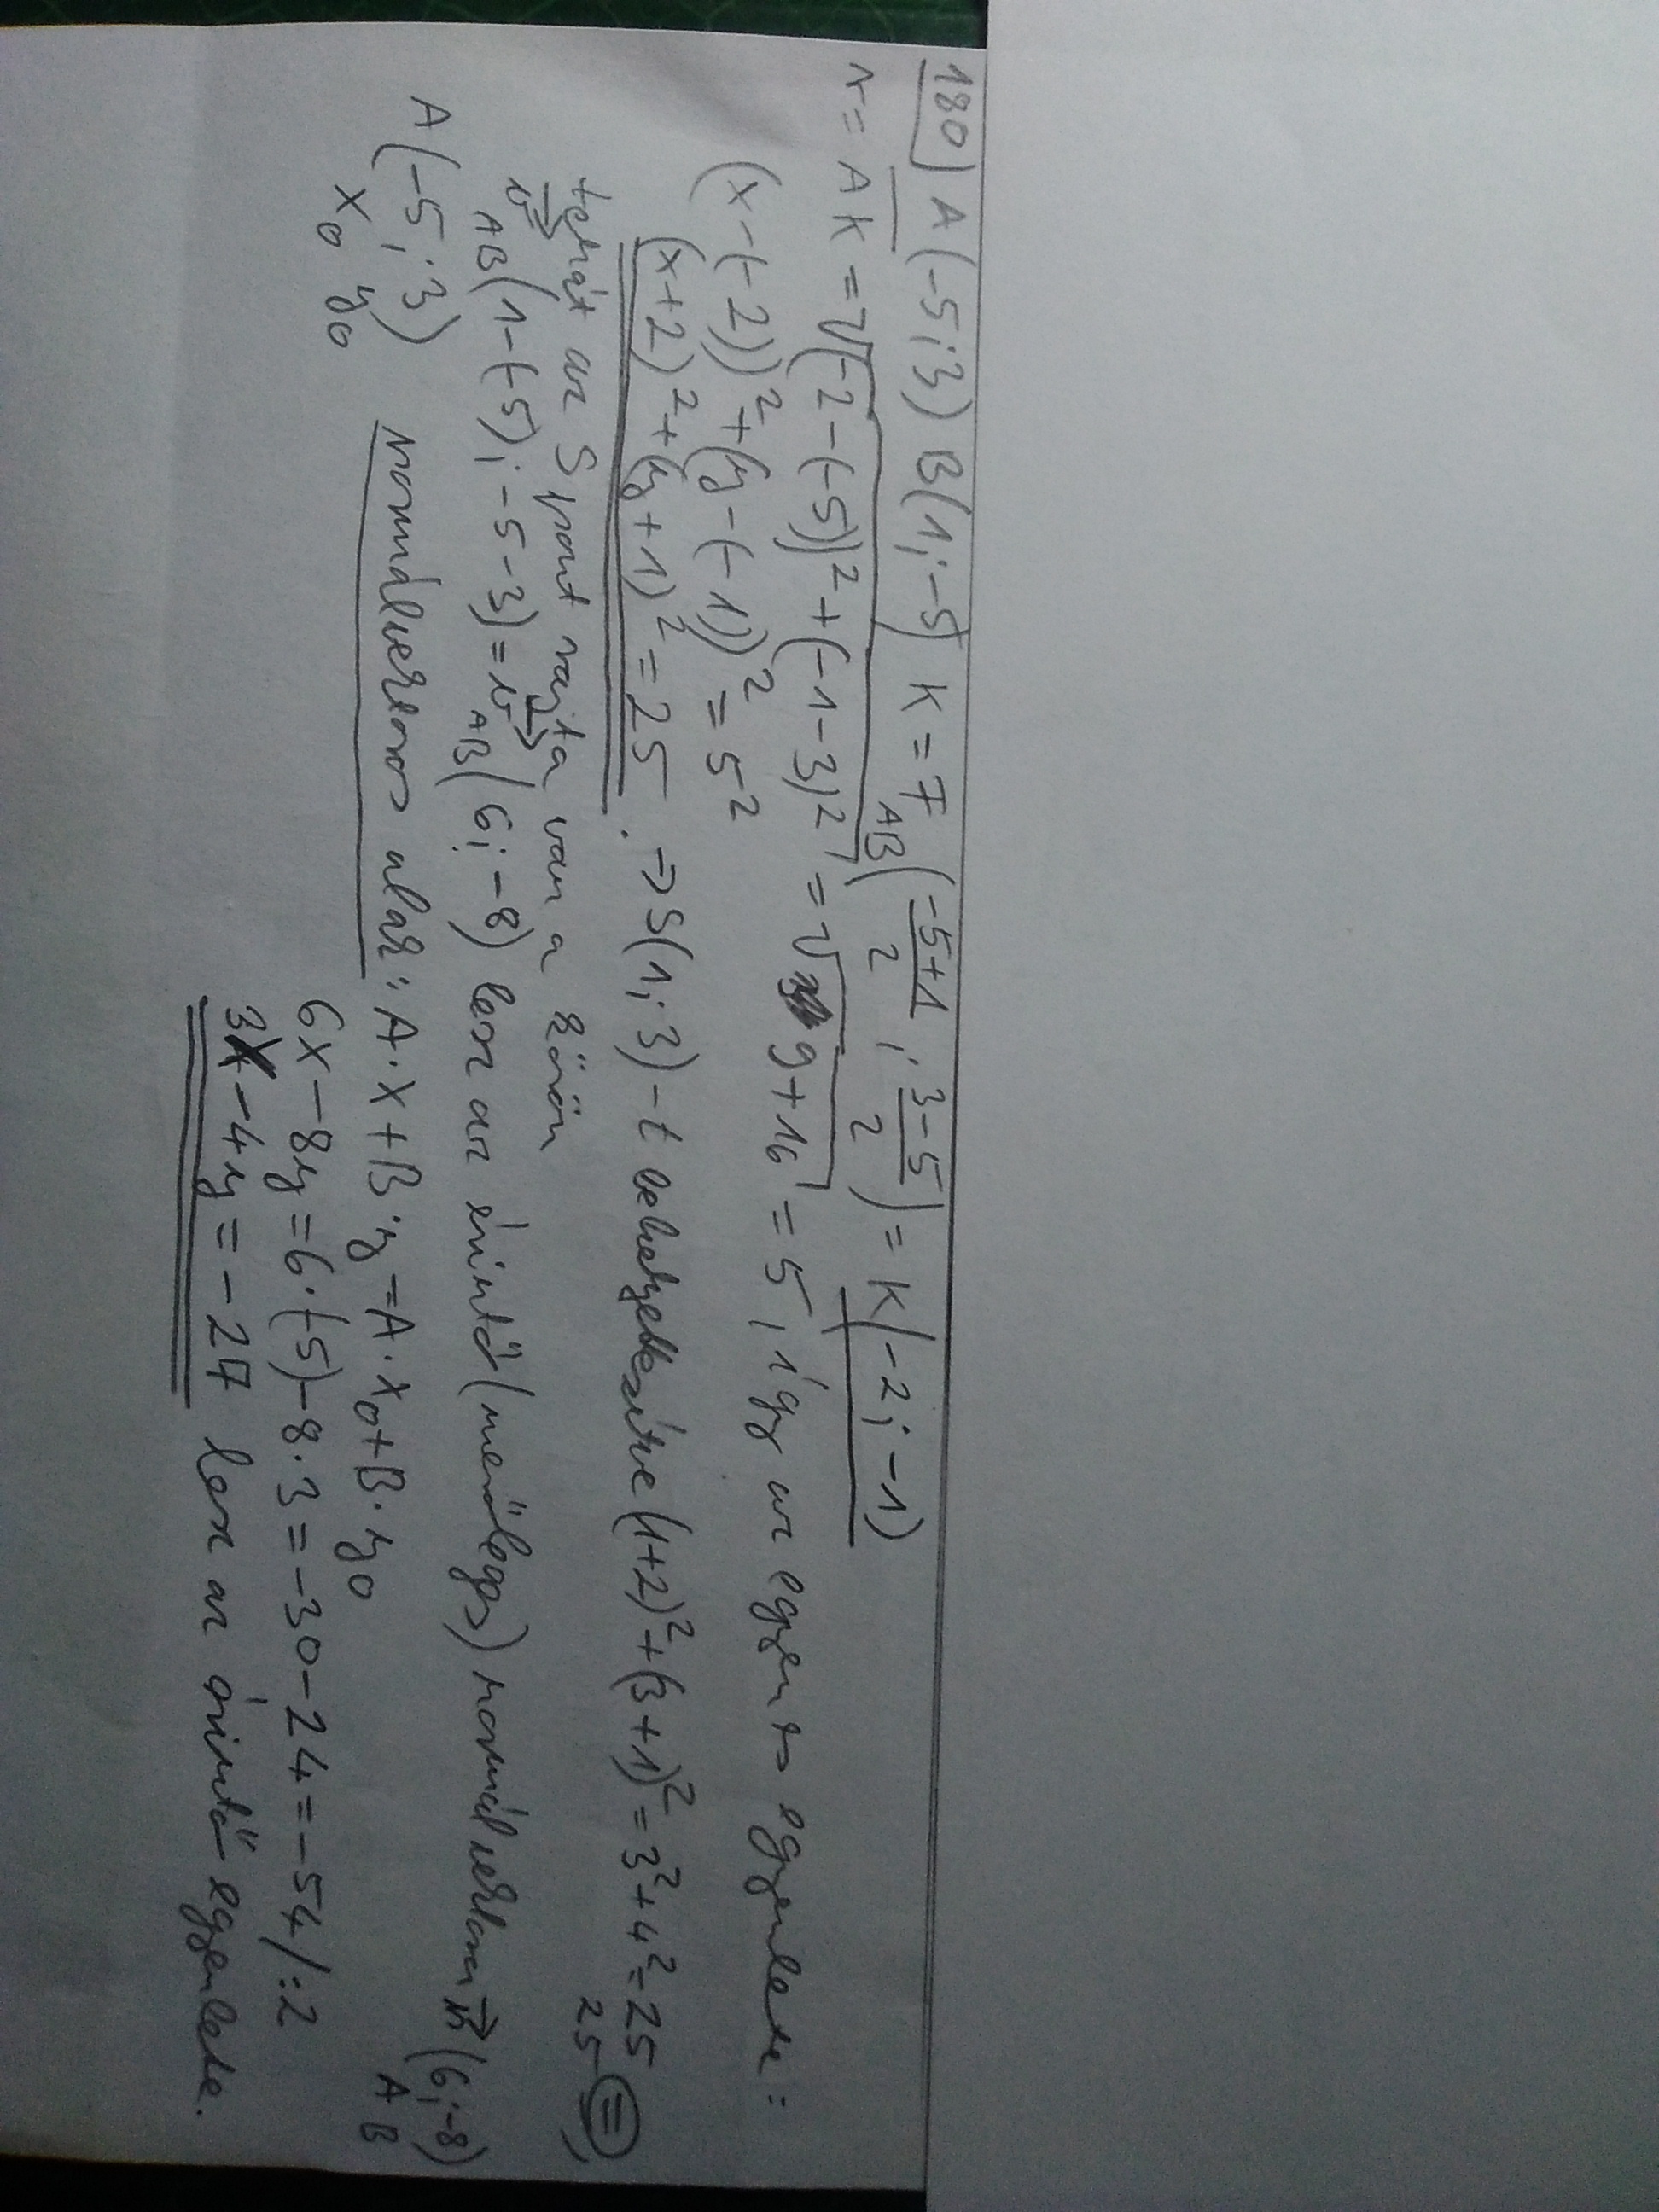 180) A(-5;3) B(1;-5) K=F_AB(\frac{-5+1}{2};\frac{3-5}{2})=K(-2;-1)
r=AK=√((-2-(-5))²+(-1-3)²)=√(9+16)=5, így az egyenes egyenlete:
(x-(-2))²+(y-(-1))²=5²
(x+2)²+(y+1)²=25. ⇒ S(1;3)-t behelyettesítve (1+2)²+(3+1)²=3²+4²=25
25 =
tehát az S pont rajta van a körön
v⃗_AB(1-(-5);-5-3)=v⃗_AB(6;-8) lesz az érintő (merőleges) normálvektor n⃗(6;-8)
A B
A(-5;3)
x₀ y₀
normálvektoros alak: A·x+B·y=A·x₀+B·y₀
6x-8y=6·(-5)-8·3=-30-24=-54/:2
3x-4y=-27 lesz az érintő egyenlete.